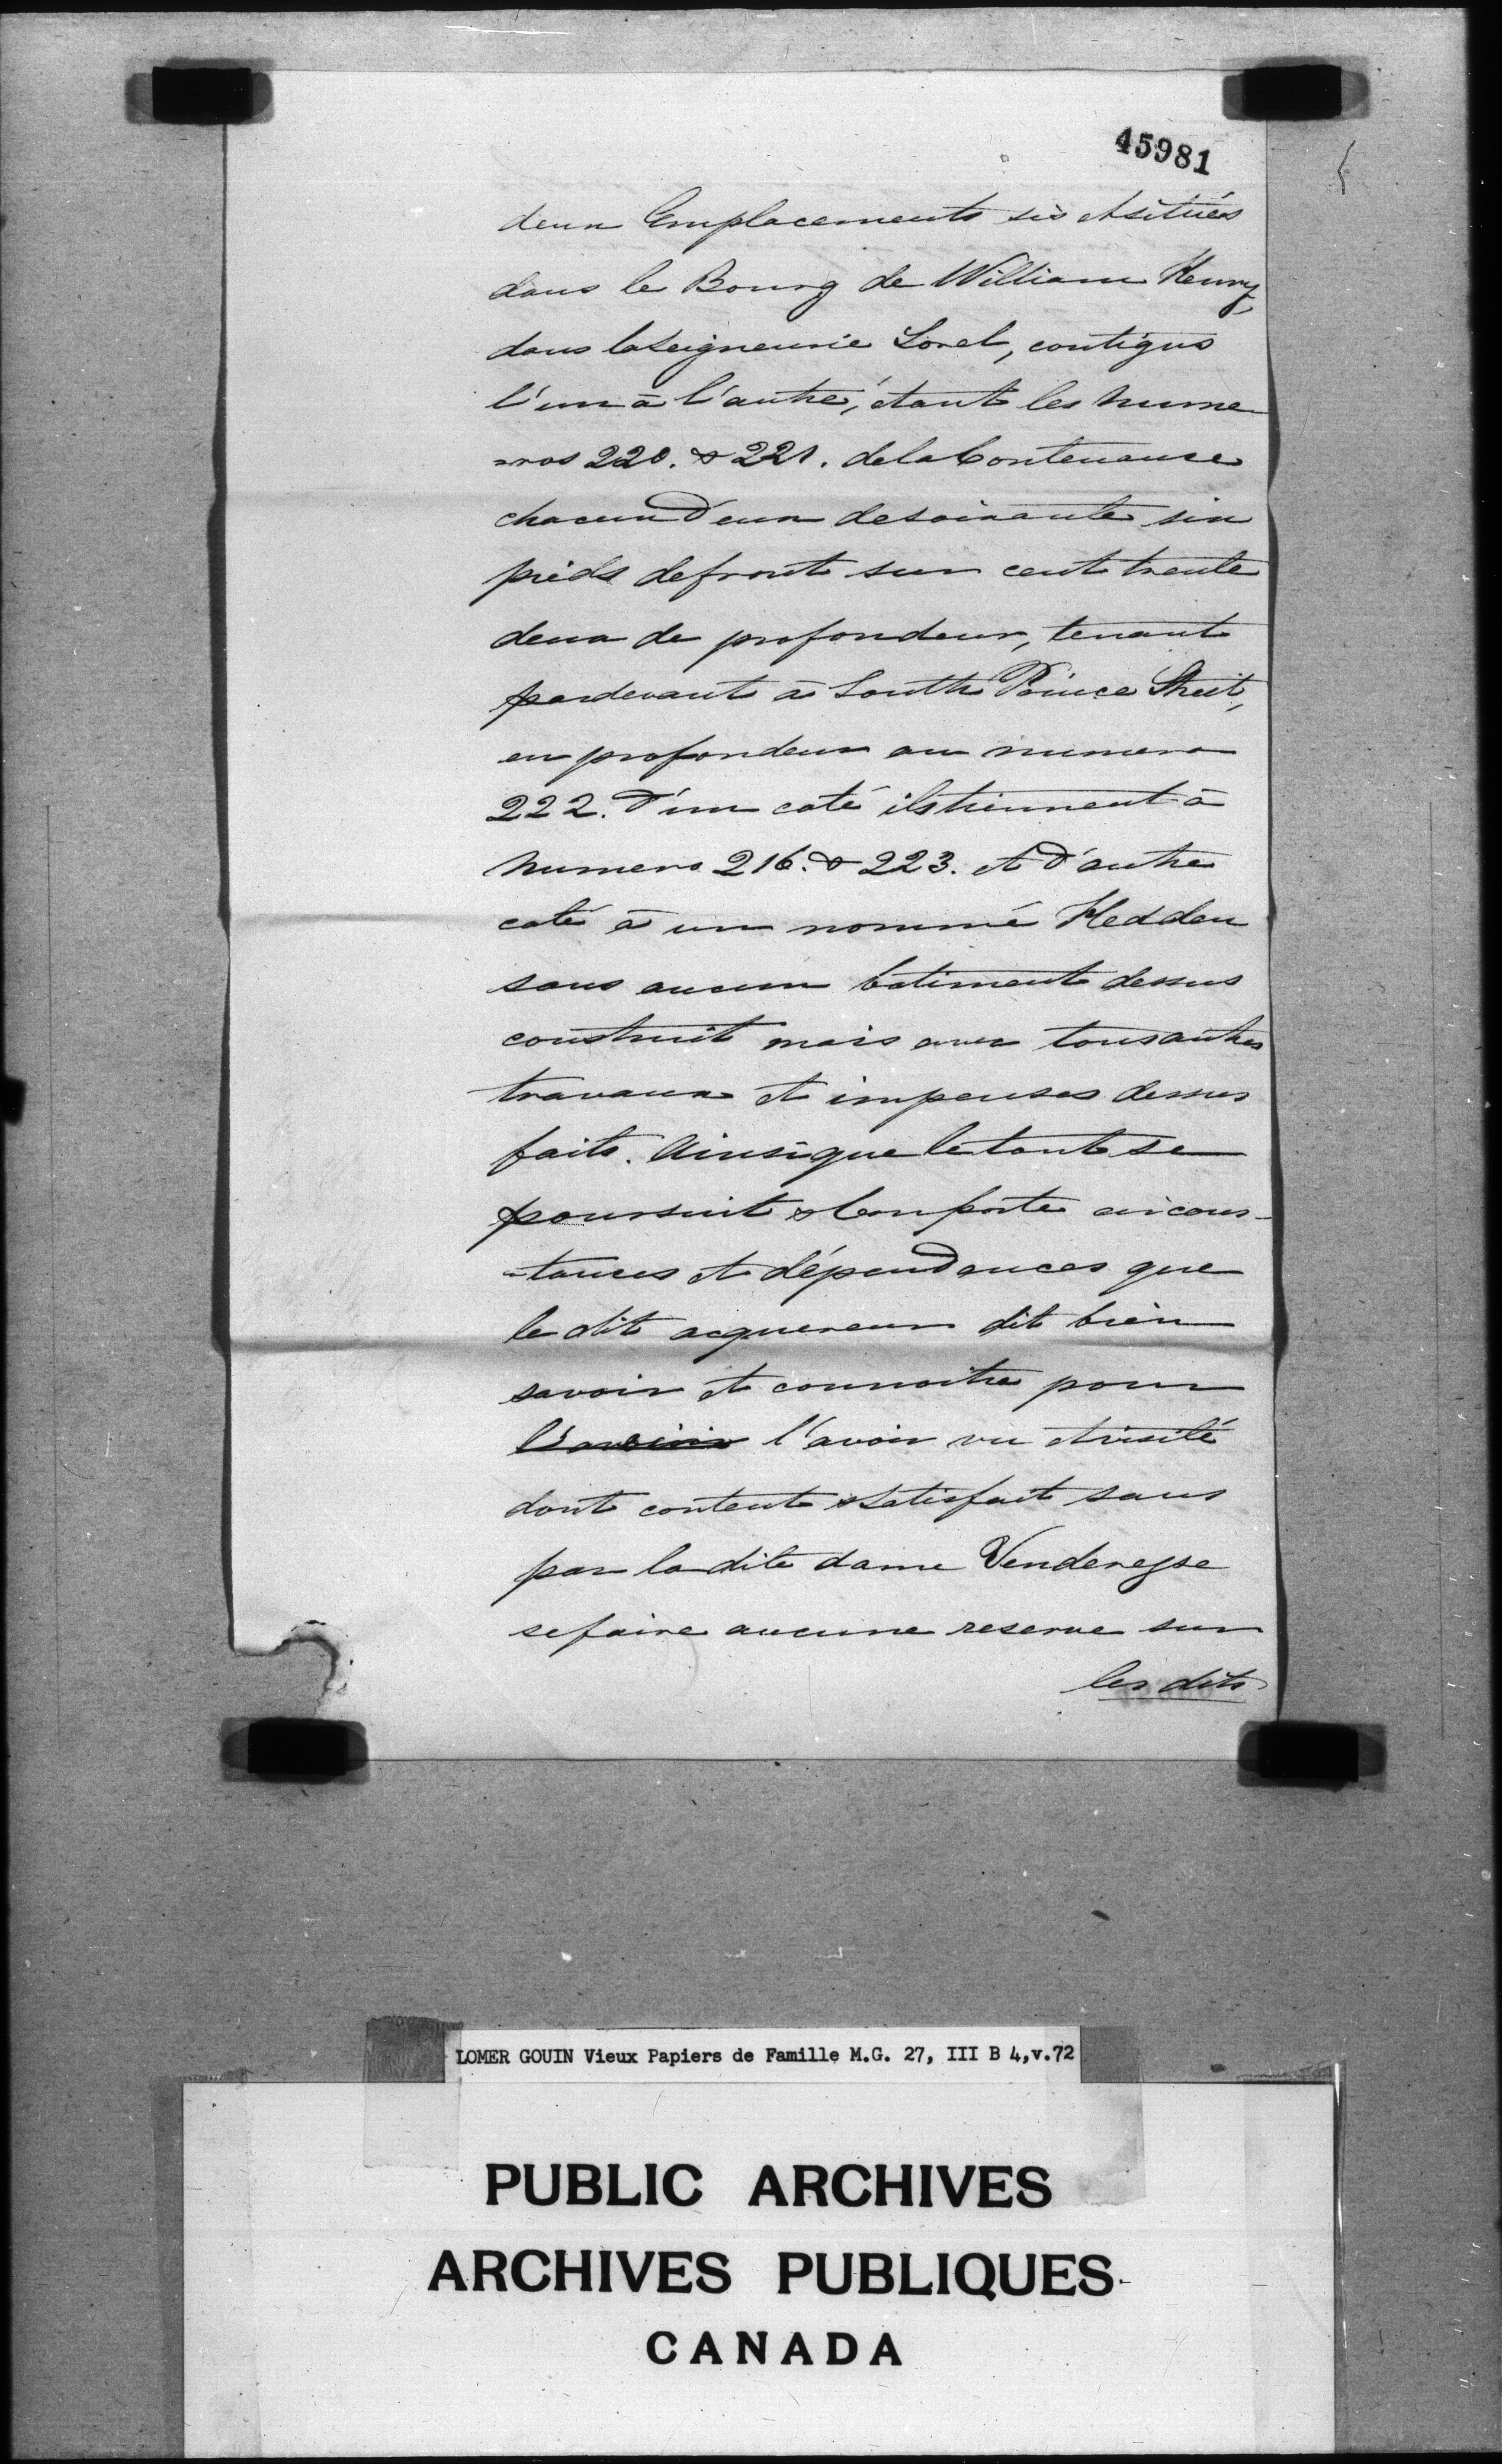 45981
deux Emplacements sis et situés
dans le Bourg de William Henry,
dans la Seigneurie Sorel, contigus
l'un à l'autre, étant les nume
=ros 220. & 221. de la Contenance
chacun d'eux de soixante six
pieds de front sur cent trente
deux de profondeur, tenant
par devant à South Prince Street,
en profondeur au numero
222. D'un coté ils tiennent à
numero 216. & 223. et d'autre
coté à un nommé Hedden
sans aucun batiment dessus
construit mais avec tous autres
travaux et impenses dessus
faits. Ainsi que le tout se
poursuit & Comporte circons-
-tances et dépendances que
le dit acquereur dit bien
savoir et connoitre pour
l'avoir vu et visité
dont content & satisfait sans
par la dite dame Venderesse
se faire aucune reserve sur
les dits
LOMER GOUIN Vieux Papiers de Famille M.G. 27, III B 4,v.72
PUBLIC ARCHIVES
ARCHIVES PUBLIQUES
CANADA